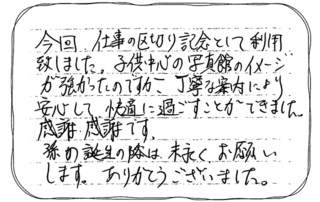 今回、仕事の区切り記念として利用
致しました。子供中心の写真館のイメージ
が強かったのですが、丁寧な案内により
安心して、快適に過ごすことができました。
感謝、感謝です。
孫の誕生の際は末永くお願い
します。ありがとうございました。